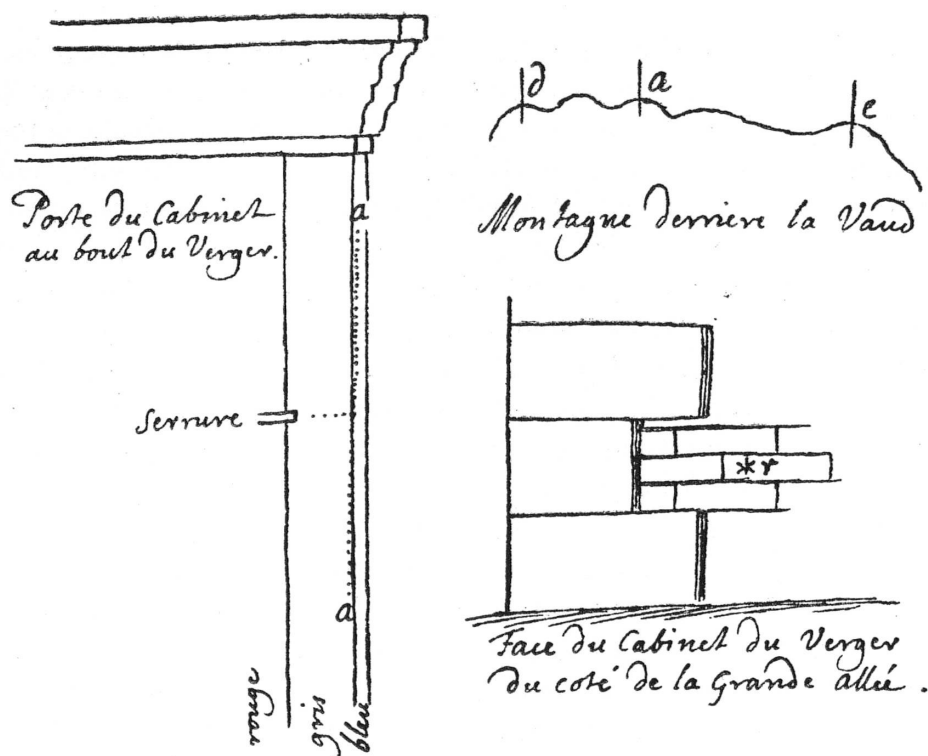 Porte du Cabinet
au bout du Verger.
a
serrure
a
rouge
gris
bleu
d a e
Montagne derriere la Vaud
*r
Face du Cabinet du Verger
du coté de la Grande allée.